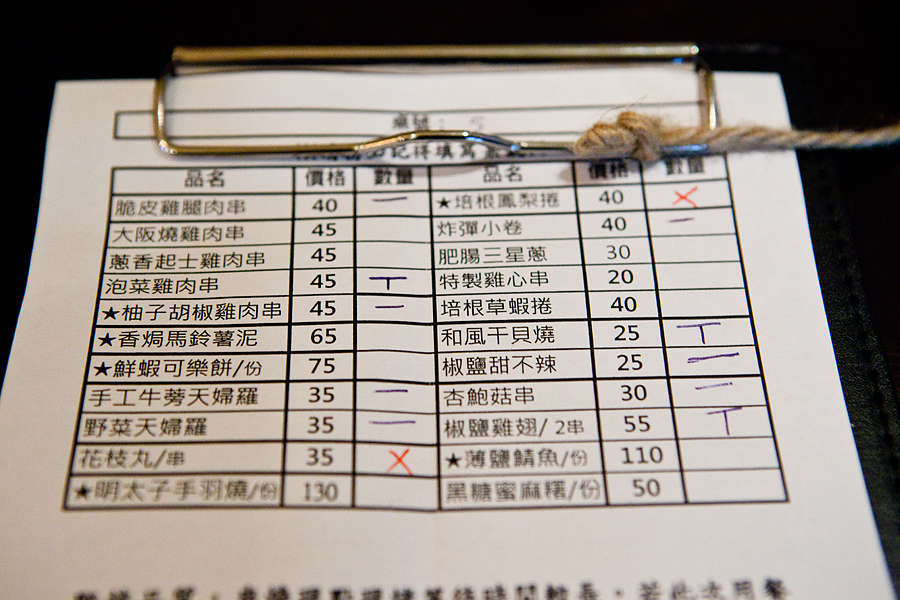 桌號
品名 價格 數量 品名 價格 數量
脆皮雞腿肉串 40 一 ★培根鳳梨捲 40 X
大阪燒雞肉串 45 炸彈小卷 40 一
蔥香起士雞肉串 45 肥腸三星蔥 30
泡菜雞肉串 45 T 特製雞心串 20
★柚子胡椒雞肉串 45 一 培根草蝦捲 40
★香焗馬鈴薯泥 65 和風干貝燒 25 T
★鮮蝦可樂餅/份 75 椒鹽甜不辣 25 一
手工牛蒡天婦羅 35 一 杏鮑菇串 30 一
野菜天婦羅 35 一 椒鹽雞翅/2串 55 T
花枝丸/串 35 X ★薄鹽鯖魚/份 110
★明太子手羽燒/份 130 黑糖蜜麻糬/份 50